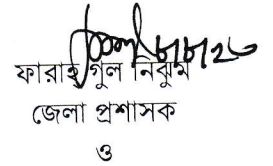 ৮।৮।২৩
ফারাহ গুল নিঝুম
জেলা প্রশাসক
ও